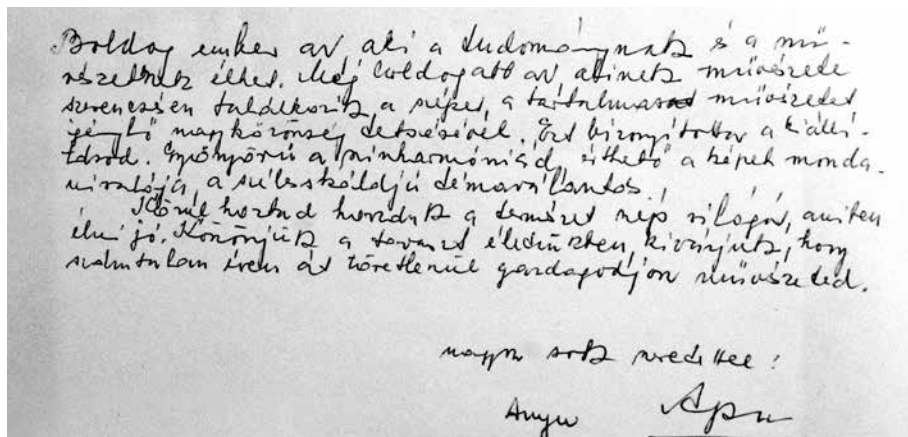 Boldog ember az aki a tudománynak és a mű-
vészetnek élhet. Még boldogabb az, akinek művészete
szerencsésen találkozik a szépet, a tartalmasat művészetet
igénylő nagyközönség tetszésével. Ezt bizonyította a kiállí-
tásod. Gyönyörű a színharmóniád, érthető a képek monda
nivalója, a széleskörű témaválasztás,
Körül hoztad hozzánk a természet szép világát, amiben
élni jó. Köszönjük a tavaszt életünkben, kívánjuk, hogy
számtalan éven át töretlenül gazdagodjon művészeted.
nagyon sok szeretettel:
Anyu Apu